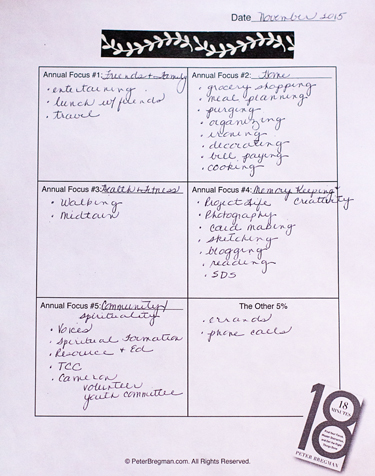 Date November 2015
Annual Focus #1: Friends + family
• entertaining
• lunch w/ friends
• travel
Annual Focus #2: Home
• grocery shopping
• meal planning
• purging
• organizing
• ironing
• decorating
• bill paying
• cooking
Annual Focus #3: Health + fitness
• Walking
• Midtain
Annual Focus #4: Memory Keeping + creativity
• Project Life
• Photography
• card making
• sketching
• blogging
• reading
• SDS
Annual Focus #5: Community/
spirituality
• Voices
• Spiritual Formation
• Resource + Ed
• TCC
• Cameron
volunteer
youth committee
The Other 5%
• errands
• phone calls
18
18
MINUTES
PETER BREGMAN
© PeterBregman.com. All Rights Reserved.